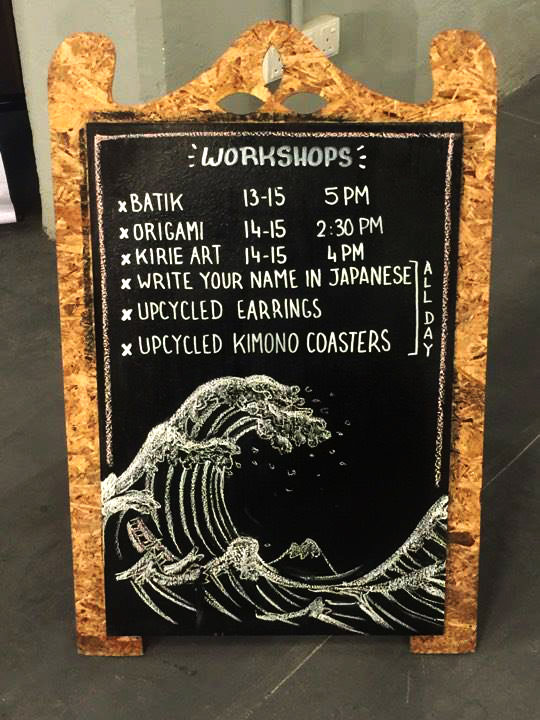 WORKSHOPS
x BATIK 13-15 5 PM
x ORIGAMI 14-15 2:30 PM
x KIRIE ART 14-15 4 PM
x WRITE YOUR NAME IN JAPANESE
x UPCYCLED EARRINGS
x UPCYCLED KIMONO COASTERS
ALL DAY